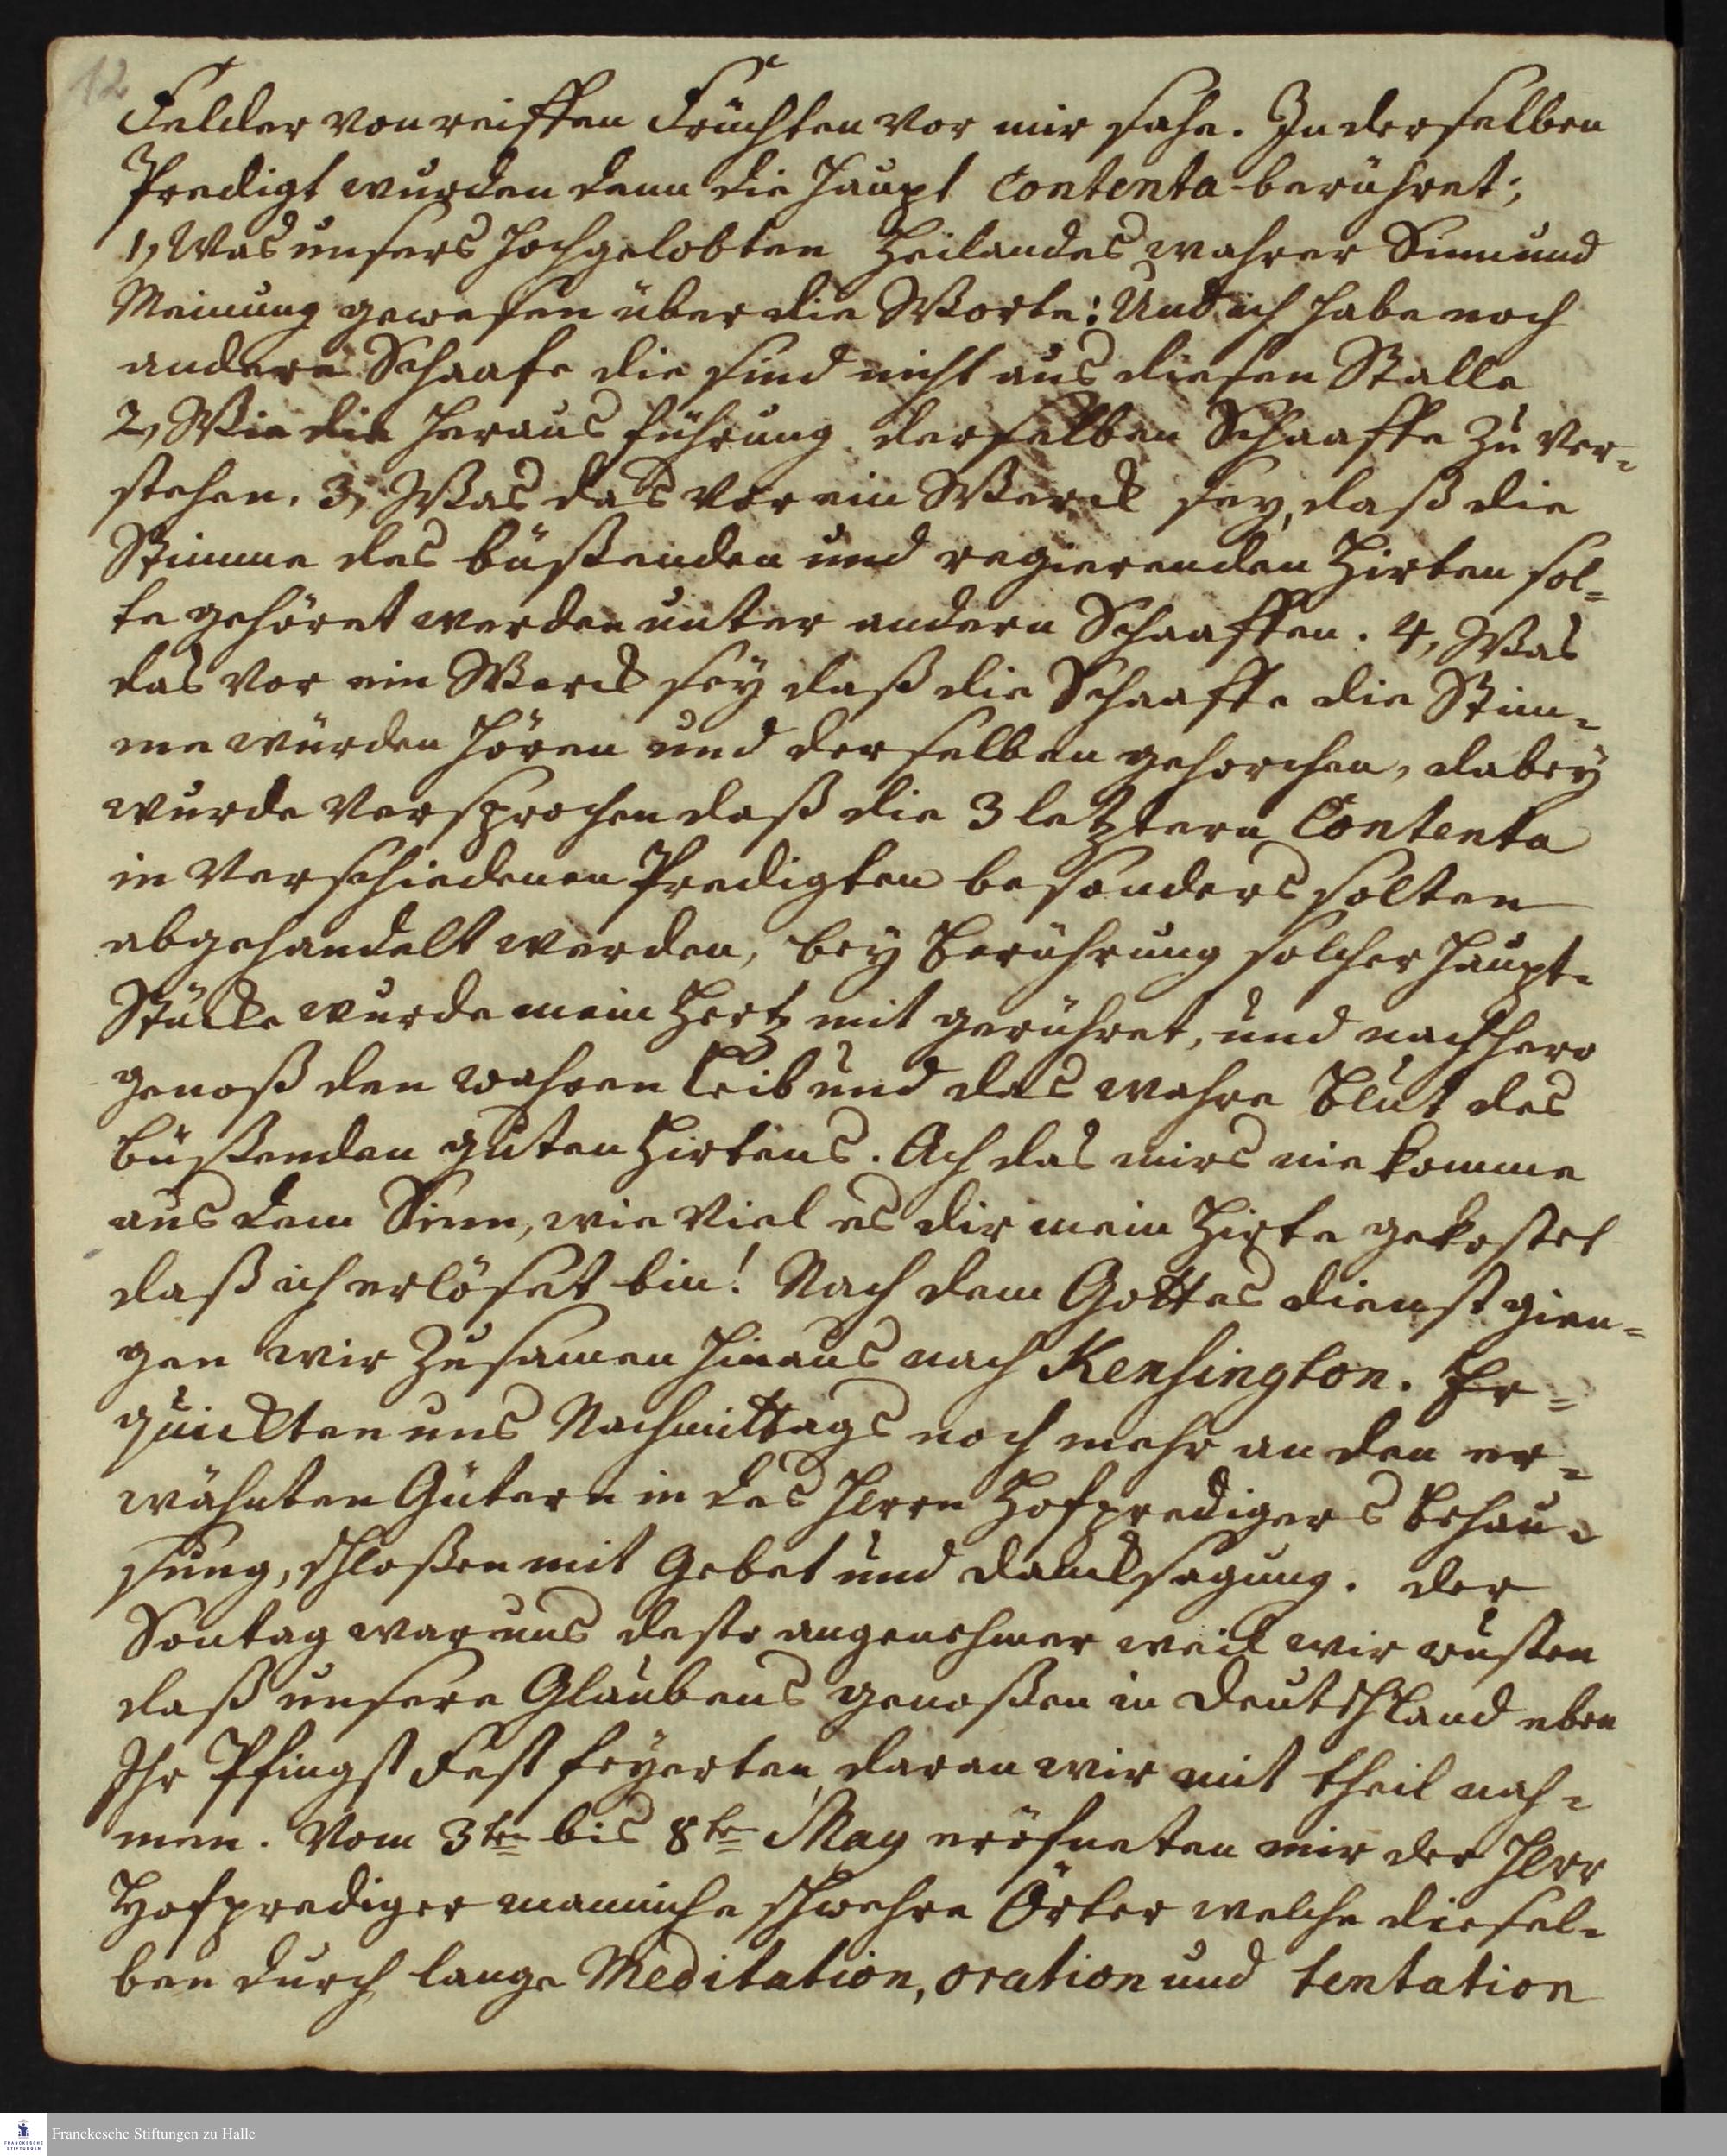 12
Felder von reiffen Früchten vor mir sahe. In derselben
Predigt wurden denn die Haupt Contenta berühret;
1, Was unsers Hochgelobten Heilandes wahrer Sinn und
Meinung gewesen über die Worte: Und ich habe noch
andere Schaafe die sind nicht aus diesen Stalle
2, Wie die Heraus führung derselben Schaaffe zu ver-
stehen. 3, Was das vor ein Werck sey, daß die
Stimme des büßenden und regierenden Hirten sol-
te gehöret werden unter andern Schaaffen. 4, Was
das vor ein Werck sey daß die Schaaffe die Stim-
me würden hören und derselben gehorchen, dabey
wurde versprochen daß die 3 letztern Contenta
in verschiedenen Predigten besonders solten
abgehandelt werden, bey Berührung solcher Haupt-
Stücke wurde mein Hertz mit gerühret, und nachhero
genoß den wahren Leib und das wahre Blut des
büßenden guten Hirtens. Ach das mirs nie komme
aus dem Sinn, wie viel es dir mein Hirte gekostet
daß ich erlöset bin! Nach dem Gottes dienst gien-
gen wir zusamen hinaus nach Kensington. Er-
quickten uns Nachmittags noch mehr an den er-
wähnten Gütern in des Herrn Hofpredigers Behau-
sung, schloßen mit Gebet und Dancksagung. Der
Sontag war uns desto angenehmer weil wir wusten
daß unsere Glaubens genoßen in Deutschland eben
Ihr Pfingst Fest feyerten, daran wir mit theil nah-
men. Vom 3ten bis 8ten May eröfneten mir der Herr
Hofprediger manniche schwehre Örter welche diesel-
ben durch lange Meditation, oration und tentation
Franckesche Stiftungen zu Halle